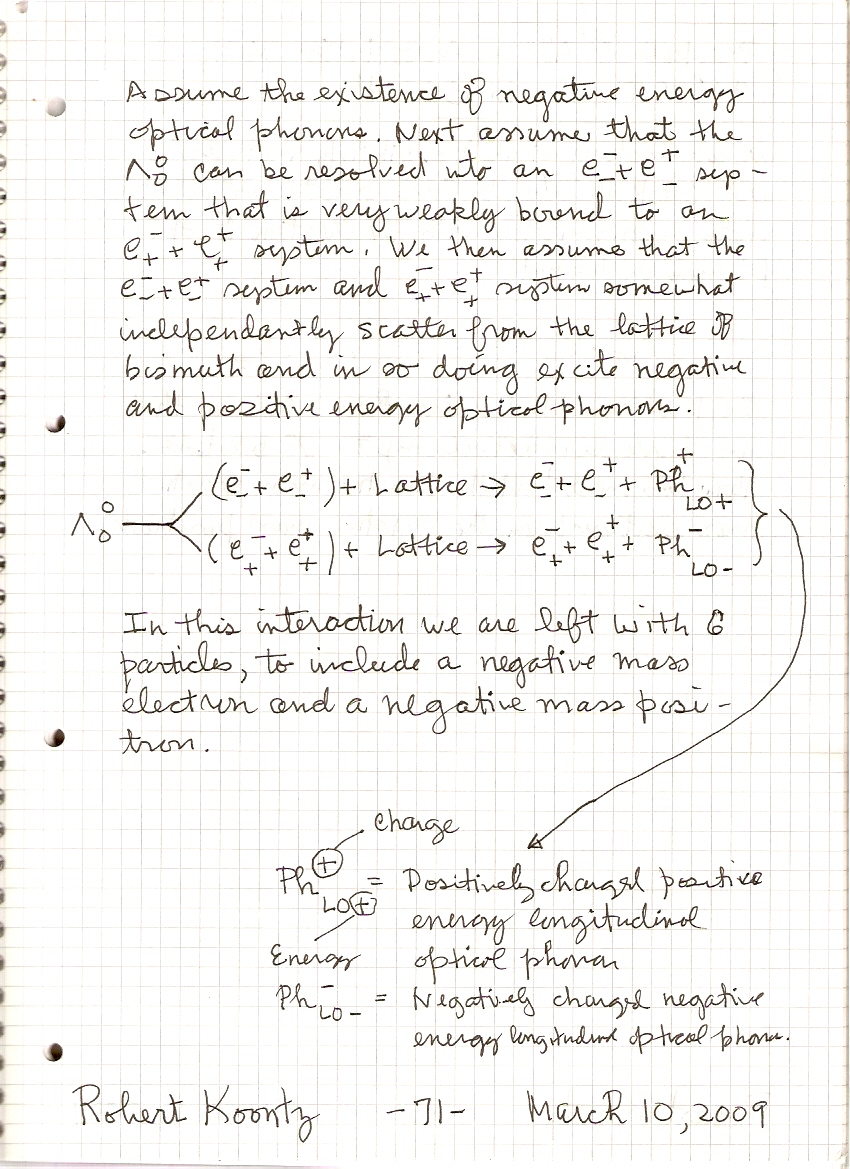 Assume the existence of negative energy
optical phonons. Next assume that the
Λ⁰₀ can be resolved into an e⁻₋ + e⁺₋ sys-
tem that is very weakly bound to an
e⁻₊ + e⁺₊ system. We then assume that the
e⁻₋ + e⁺₋ system and e⁻₊ + e⁺₊ system somewhat
independantly scatter from the lattice of
bismuth and in so doing excite negative
and positive energy optical phonons.
(e⁻₋ + e⁺₋) + Lattice → e⁻₋ + e⁺₋ + Ph⁺LO+
Λ⁰₀
(e⁻₊ + e⁺₊) + Lattice → e⁻₊ + e⁺₊ + Ph⁻LO−
In this interaction we are left with 6
particles, to include a negative mass
electron and a negative mass posi-
tron.
charge
Ph⁺LO+ = Positively charged positive
energy longitudinal
Energy optical phonon
Ph⁻LO− = Negatively charged negative
energy longitudinal optical phonon.
Robert Koontz -71- March 10, 2009